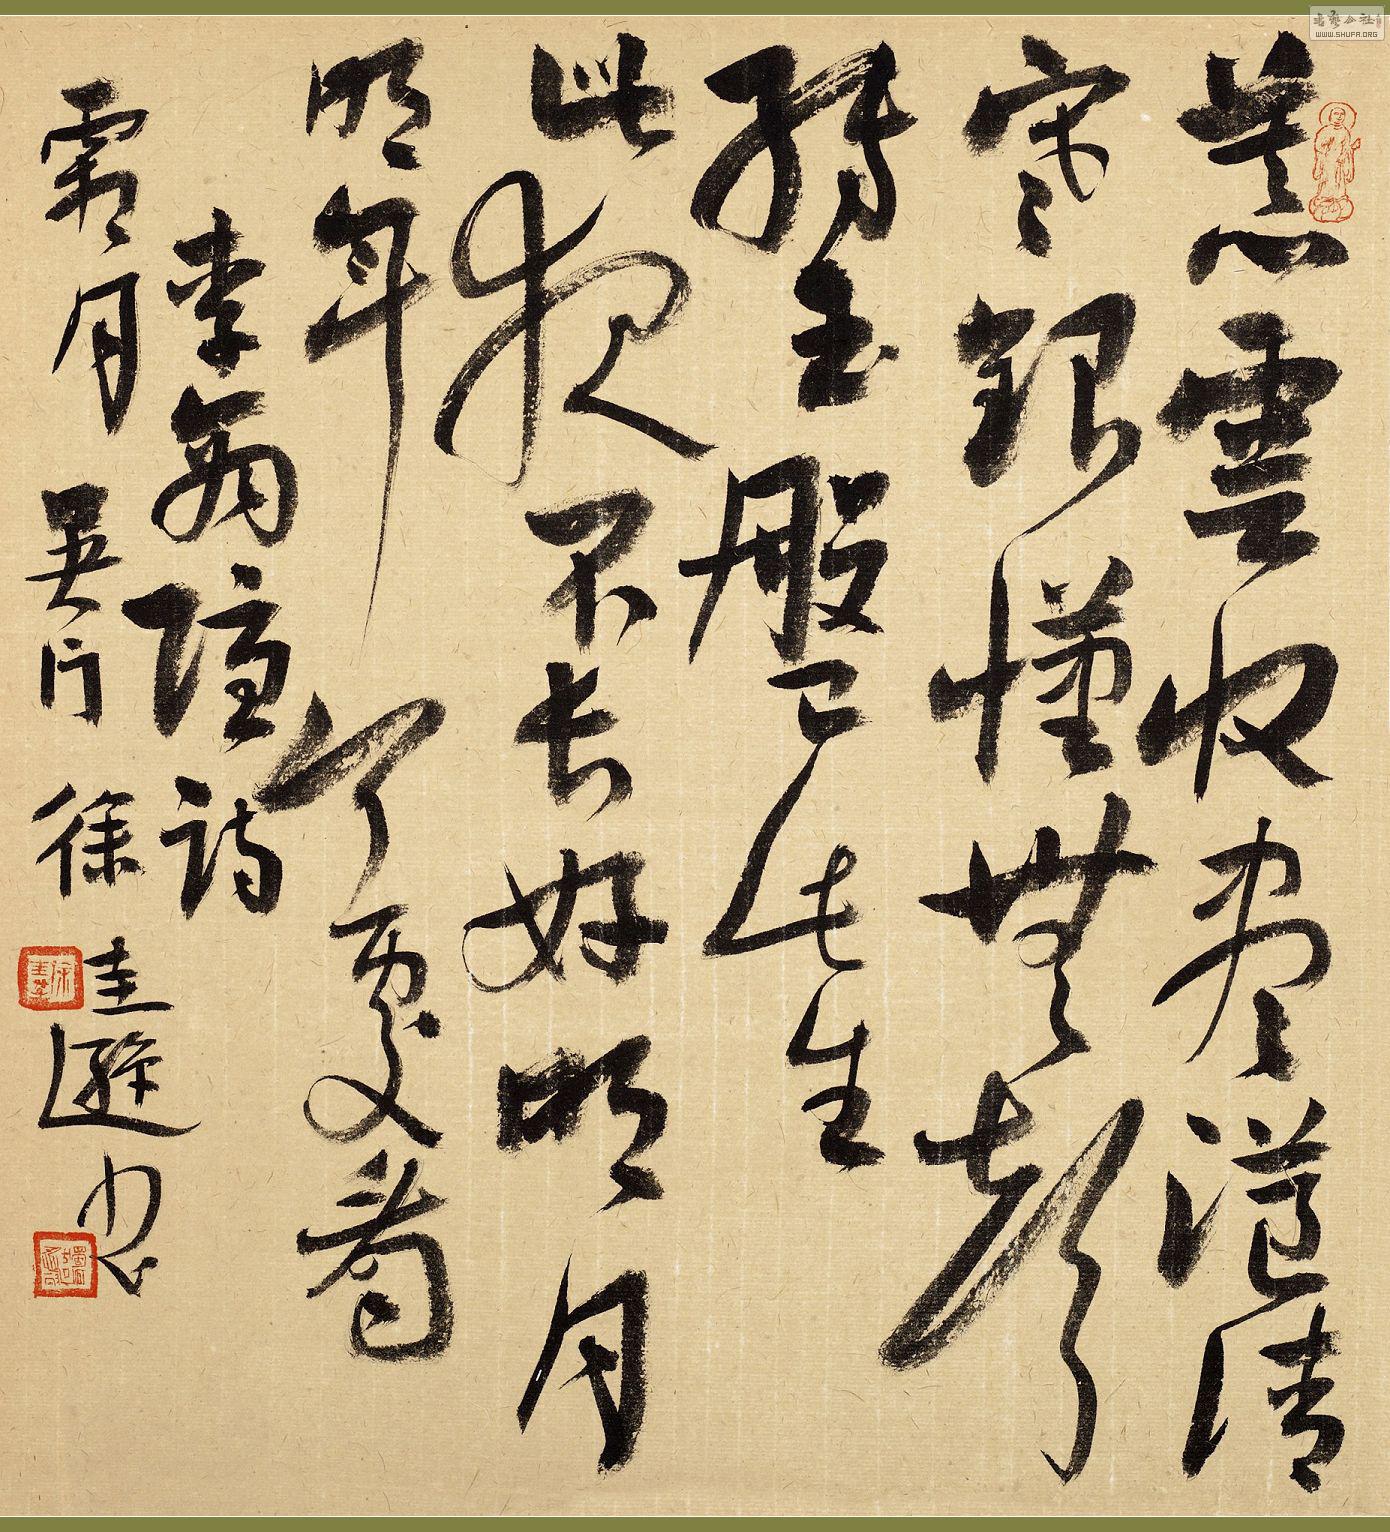 暮雲收盡溢清
寒銀漢無聲
轉玉盤此生
此夜不長好明月
明年何處看
李詩
霜月吴门徐圭遜书
书艺公社
WWW.SHUFA.ORG